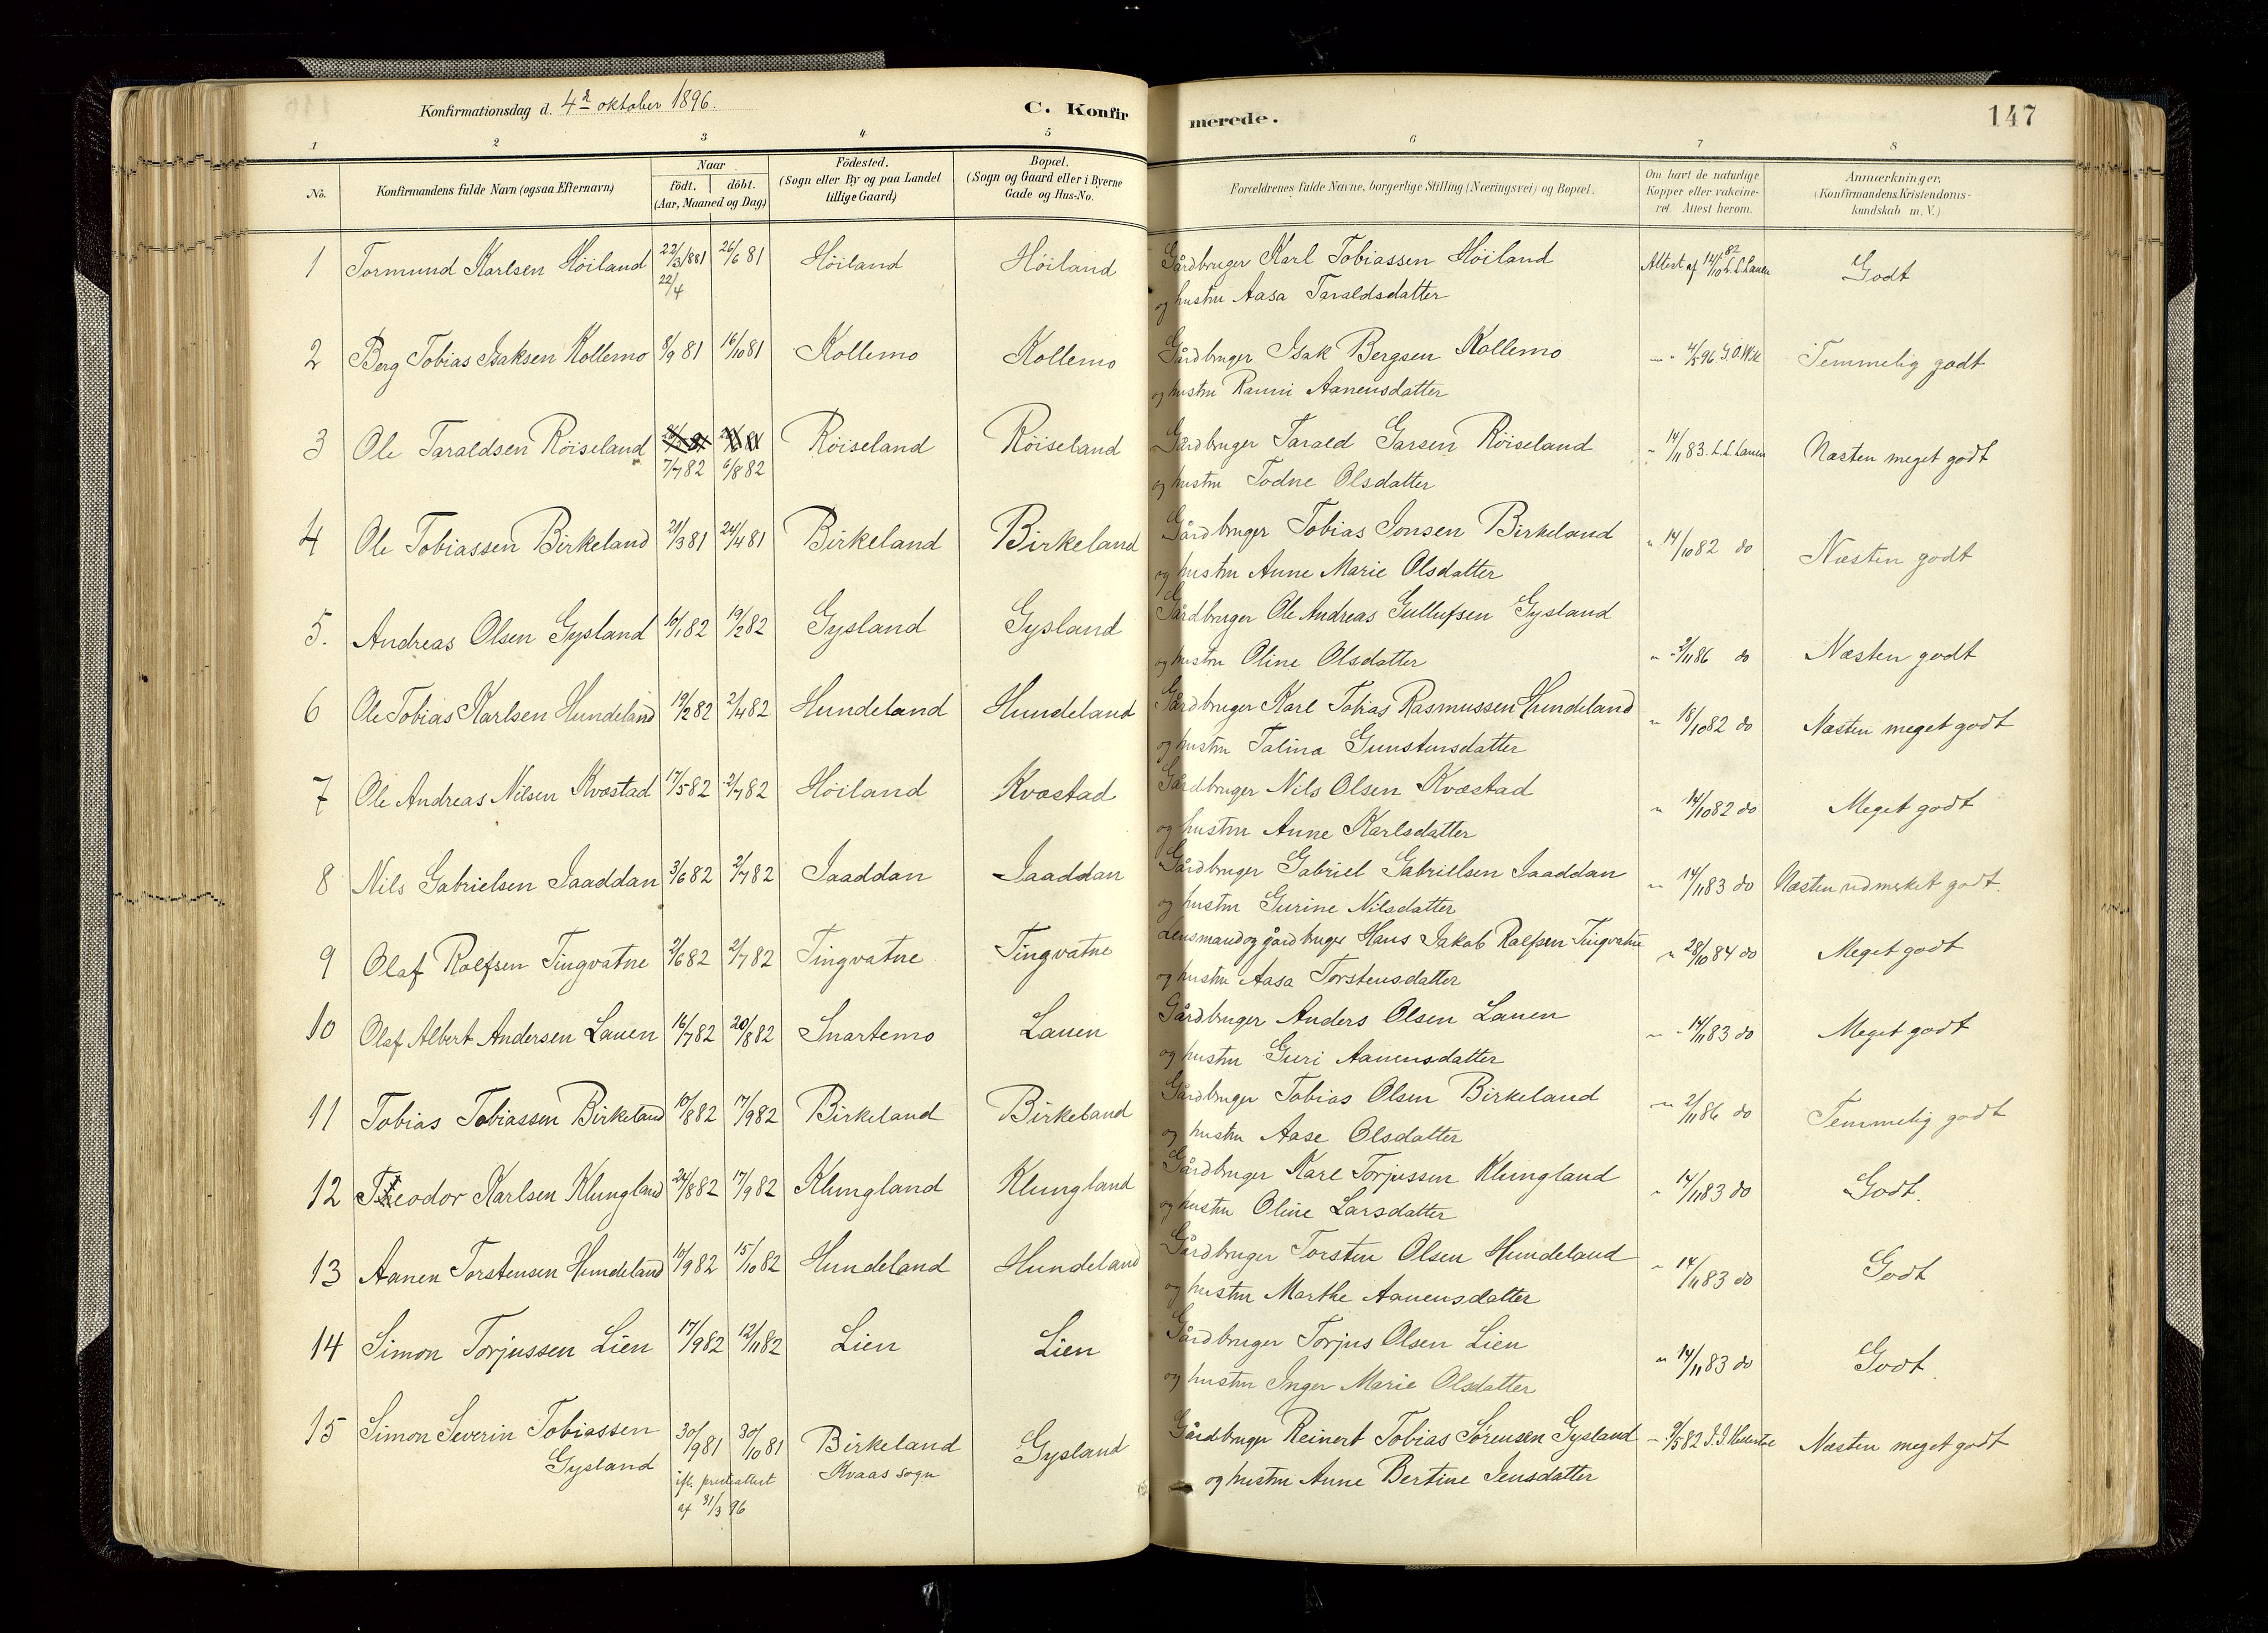 Konfirmationsdag d. 4de oktober 1896.
C. Konfirmerede.
147
1 2 3 4 5 6 7 8
No.
Konfirmandens fulde Navn (ogsaa Efternavn)
Naar
födt. döbt.
(Aar, Maaned og Dag)
Födested.
(Sogn eller By og paa Landet
tillige Gaard)
Bopæl.
(Sogn og Gaard eller i Byerne
Gade og Hus-No.
Forældrenes fulde Navne, borgerlige Stilling (Næringsvei) og Bopæl.
Om havt de naturlige
Kopper eller vakcine-
ret. Attest herom.
Anmærkninger,
(Konfirmandens Kristendoms-
kundskab m. V.)
1 Tormund Karlsen Höiland 22/3 1881 26/6 81 Höiland Höiland Gårdbruger Karl Tobiassen Höiland Attest af 14/10 82 L. L. Lauen Godt
22/4 og hustru Aasa Taraldsdatter
2 Berg Tobias Isaksen Kollemo 8/9 81 16/10 81 Kollemo Kollemo Gårdbruger Isak Bergsen Kollemo Temmelig godt
og hustru Ranni Aanensdatter
3 Ole Taraldsen Röiseland Röiseland Röiseland Gårdbruger Tarald Garsen Röiseland " 14/11 83. L. L. Lauen Næsten meget godt
7/7 82 6/8 82 og hustru Todne Olsdatter
4 Ole Tobiassen Birkeland 21/3 81 24/4 81 Birkeland Birkeland Gårdbruger Tobias Jonsen Birkeland " 14/10 82 do Næsten godt
og hustru Anne Marie Olsdatter
5. Andreas Olsen Gysland 10/1 82 19/2 82 Gysland Gysland Gårdbruger Ole Andreas Gullufsen Gysland
og hustru Oline Olsdatter " 2/11 86 do Næsten godt
6 Ole Tobias Karlsen Hundeland 19/2 82 2/4 82 Hundeland Hundeland Gårdbruger Karl Tobias Rasmussen Hundeland " 18/10 82 do Næsten meget godt
og hustru Talina Gunstensdatter
7 Ole Andreas Nilsen Kvæstad 17/5 82 2/7 82 Höiland Kvæstad Gårdbruger Nils Olsen Kvæstad " 14/10 82 do Meget godt
og hustru Anne Karlsdatter
8 Nils Gabrielsen Jaaddan 3/6 82 2/7 82 Jaaddan Jaaddan Gårdbruger Gabriel Gabrielsen Jaaddan " 14/11 83 do Næsten udmerket godt.
og hustru Gurine Nilsdatter
9 Olaf Rolfsen Tingvatne 2/6 82 2/7 82 Tingvatne Tingvatne Lensmand og gårdbruger Hans Jakob Rolfsen Tingvatne " 28/10 84 do Meget godt
og hustru Aasa Torstensdatter
10 Olaf Albert Andersen Lauen 16/7 82 20/8 82 Snartemo Lauen Gårdbruger Anders Olsen Lauen " 14/11 83 do Meget godt
og hustru Guri Aanensdatter
11 Tobias Tobiassen Birkeland 10/8 82 17/9 82 Birkeland Birkeland Gårdbruger Tobias Olsen Birkeland " 2/11 86 do Temmelig godt
og hustru Aase Olsdatter
12 Teodor Karlsen Klungland 24/8 82 17/9 82 Klungland Klungland Gårdbruger Karl Torjussen Klungland " 14/11 83 do Godt.
og hustru Oline Larsdatter
13 Aanen Torstensen Hundeland 10/9 82 15/10 82 Hundeland Hundeland Gårdbruger Torsten Olsen Hundeland " 14/11 83 do Godt
og hustru Marthe Aanensdatter
14 Simon Torjussen Lien 17/9 82 12/11 82 Lien Lien Gårdbruger Torjus Olsen Lien " 14/11 83 do Godt.
og hustru Inger Marie Olsdatter
15 Simon Severin Tobiassen 30/9 81 30/10 81 Birkeland Gysland Gårdbruger Reinert Tobias Sörensen Gysland " 9/5 82 Næsten meget godt
Gysland ifl. prestattest Kvaas sogn og hustru Anne Bertine Jensdatter
af 31/3 96